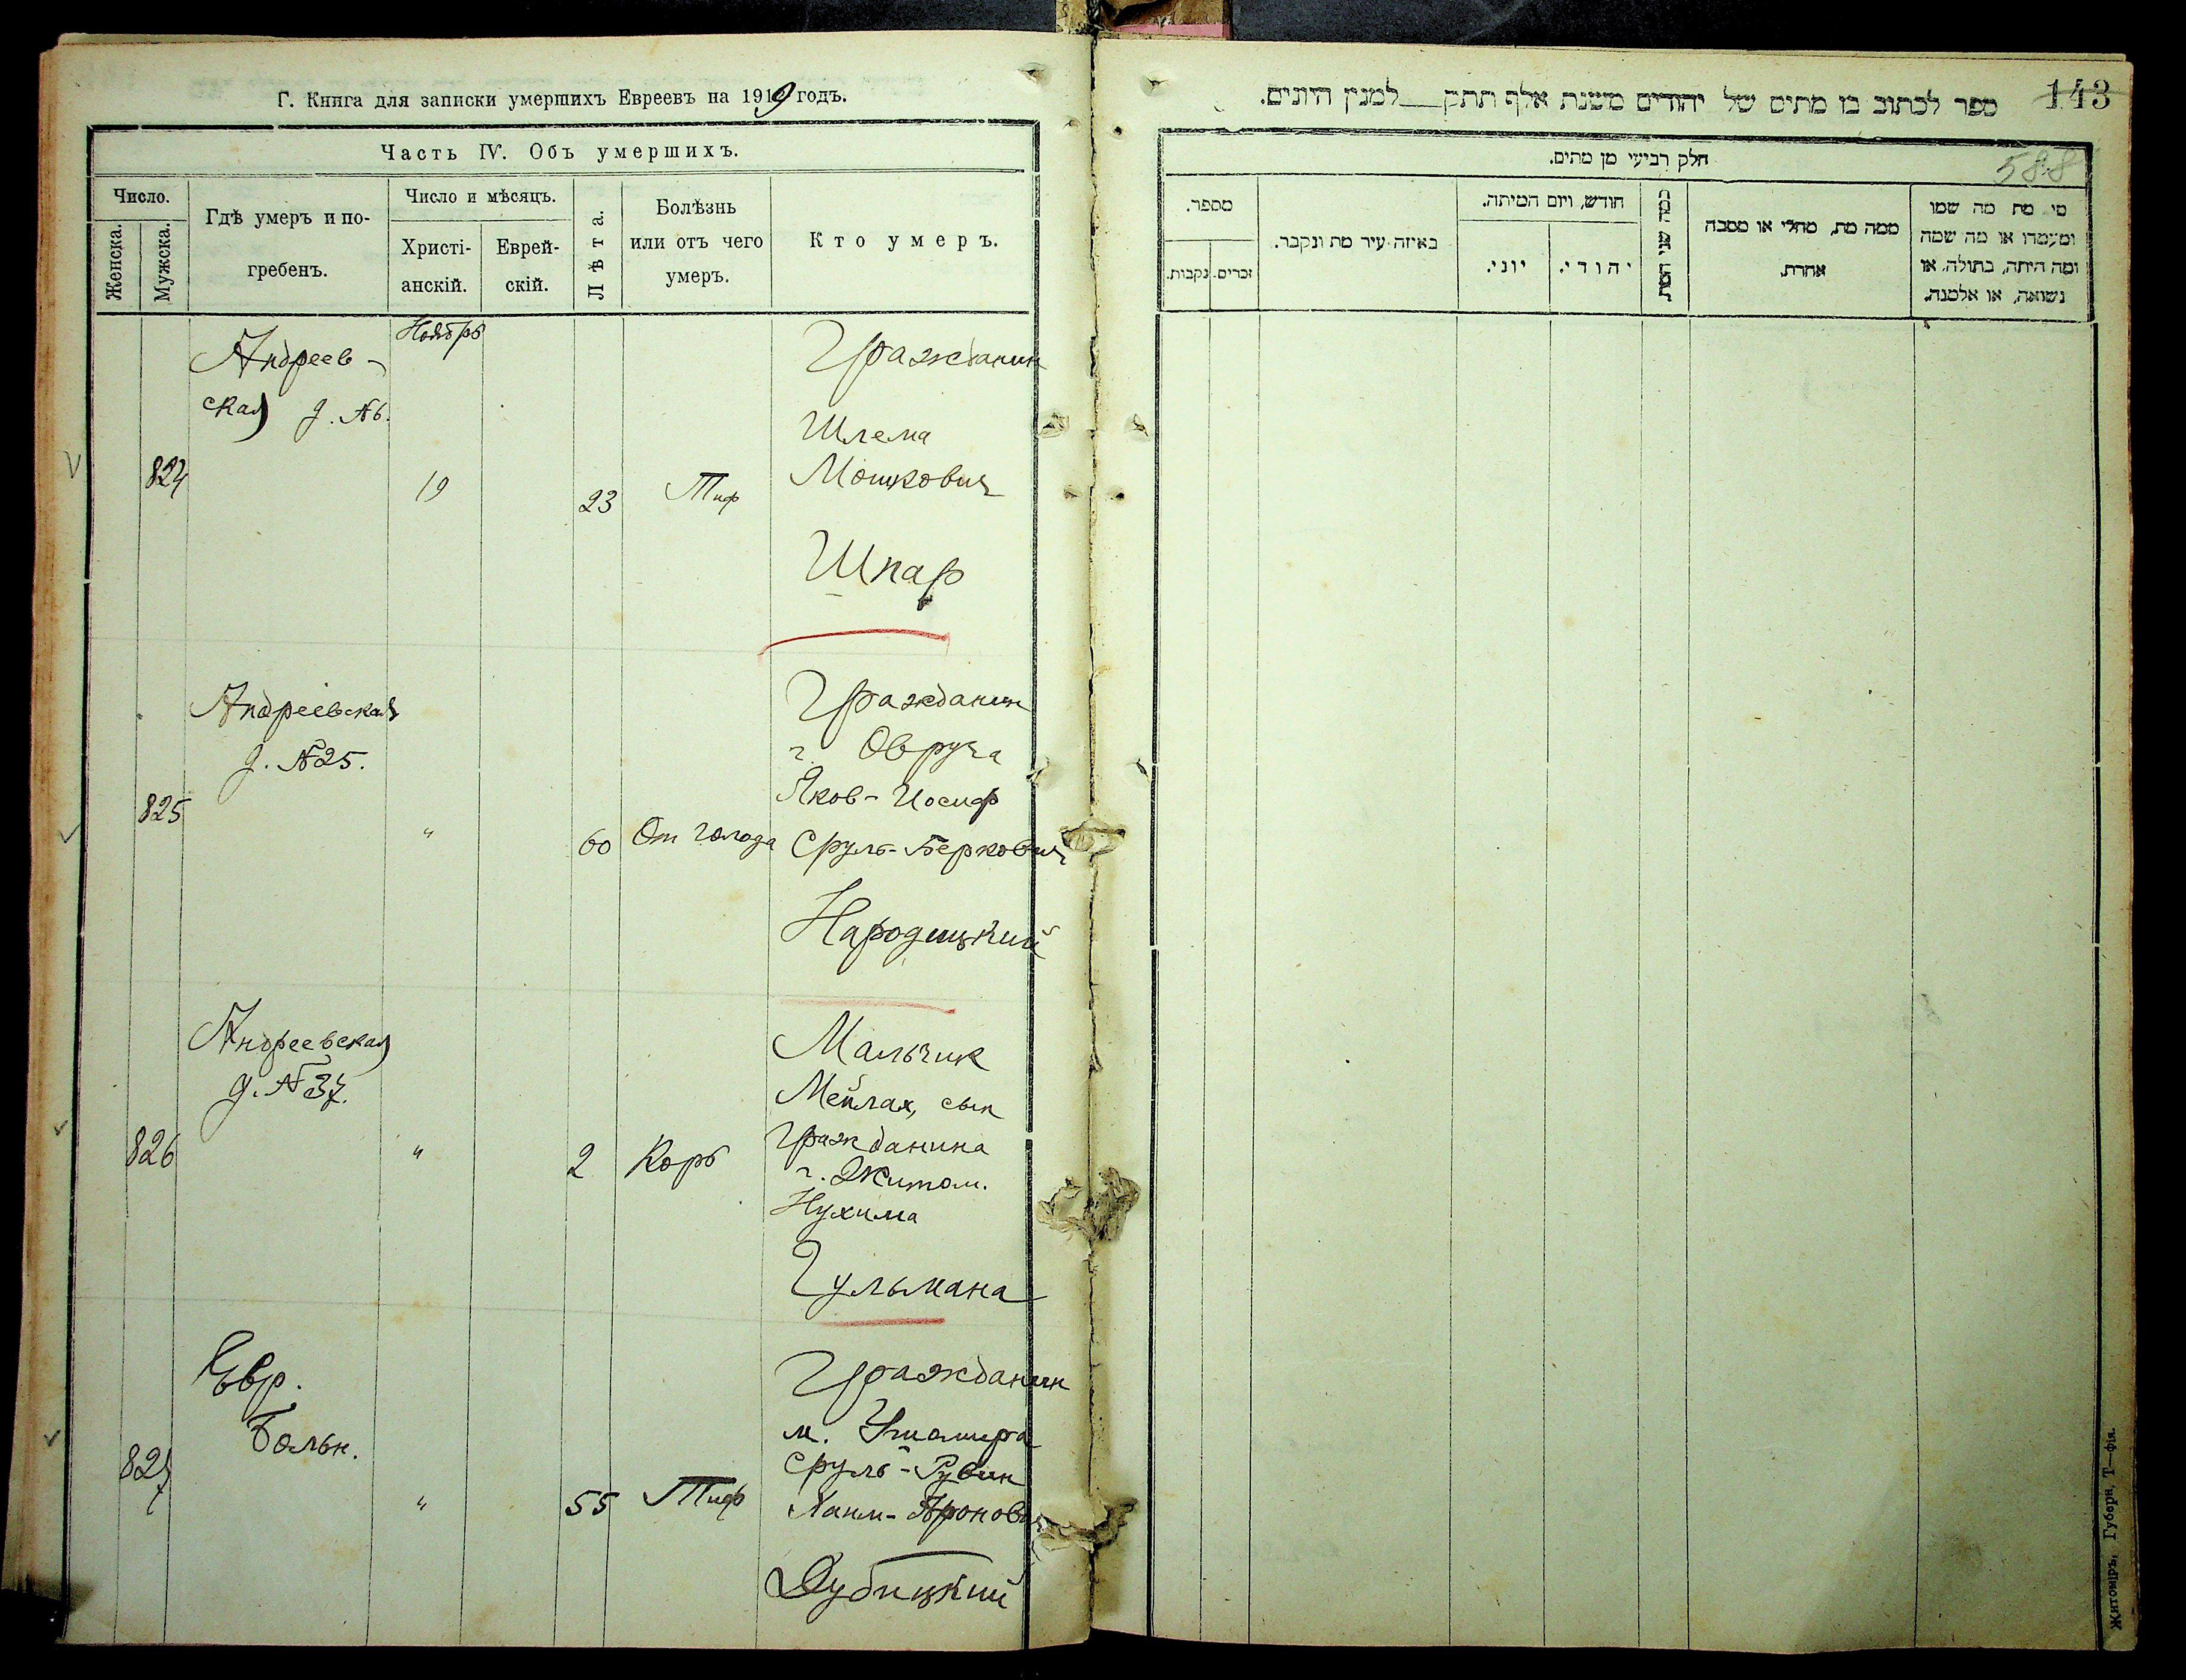 Г. Книга для записки умершихъ Евреевъ на 1919 годъ.
Часть IV. Объ умершихъ.
Число.
Женска.
Мужска.
Гдѣ умеръ и по-
гребенъ.
Число и мѣсяцъ.
Христі-
анскій.
Еврей-
скій.
Лѣта.
Болѣзнь
или отъ чего
умеръ.
Кто умеръ.
Ноябрь
Андреев-
ская д. №6.
824
19
23
Тиф
Гражданин
Шлема
Мошкович
Шпар
Андреевская
д. №25.
825
"
60
От голода
Гражданин
г. Овруча
Яков-Иосиф
Сруль-Беркович
Народицкий
Андреевская
д. №37.
826
"
2
Корь
Мальчик
Мейлах, сын
гражданина
г. Житом.
Нухима
Гульмана
Евр.
Больн.
827
"
55
Тиф
Гражданин
м.
Сруль-Рувин
Хаим-Аронович
Дубицкий
ספר לכתוב בו מתים של יהודים משנת אלף תתק___למנין היונים.
143
588
חלק רביעי מן מתים.
מספר.
נקבות.
זכרים.
באיזה עיר מת ונקבר.
חודש, ויום המיתה.
יוני.
יהודי.
כמה שני המת
ממה מת, מחלי או מסבה
אחרת.
מי מת מה שמו
ומעמדו או מה שמה
ומה היתה, בתולה, או
נשואה, או אלמנה.
Житоміръ, Губерн. Т—фія.